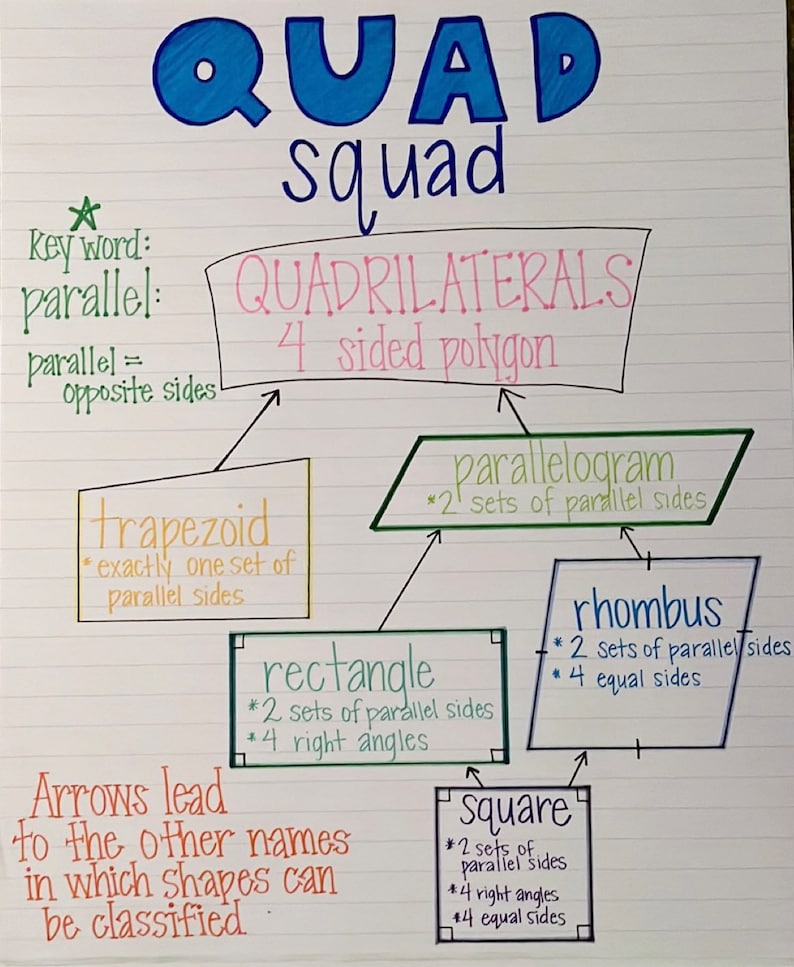 QUAD
squad
Key word:
parallel:
parallel =
opposite sides
QUADRILATERALS
4 sided polygon
trapezoid
*exactly one set of
parallel sides
parallelogram
*2 sets of parallel sides
rectangle
*2 sets of parallel sides
*4 right angles
rhombus
*2 sets of parallel sides
*4 equal sides
square
*2 sets of
parallel sides
*4 right angles
*4 equal sides
Arrows lead
to the other names
in which shapes can
be classified